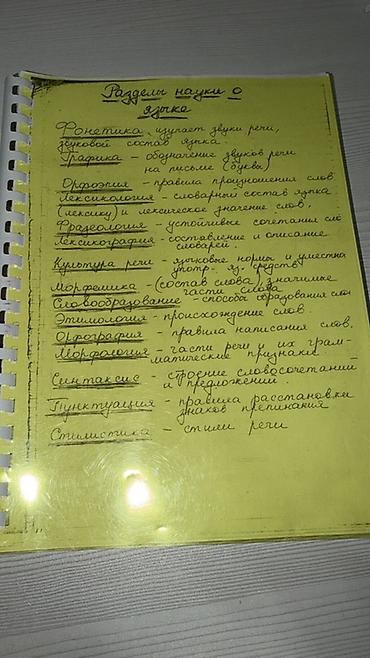 Разделы науки о
языке
Фонетика изучает звуки речи,
звуковой состав языка.
Графика - обозначение звуков речи
на письме (буквы)
Орфоэпия - правила произношения слов
Лексикология - словарный состав языка
(лексику) и лексическое значение слов.
Фразеология - устойчивые сочетания сло
Лексикография - составление и описание
словарей.
Культура речи - языковые нормы и уместное
употр. яз. средств
Морфемика - (состав слова) значимые
части слова
Словообразование - способы образования слов
Этимология - происхождение слов.
Орфография - правила написания слов.
Морфология - части речи и их грам-
матические признаки
Синтаксис - строение словосочетаний
и предложений.
Пунктуация - правила расстановки
знаков препинания
Стилистика - стили речи